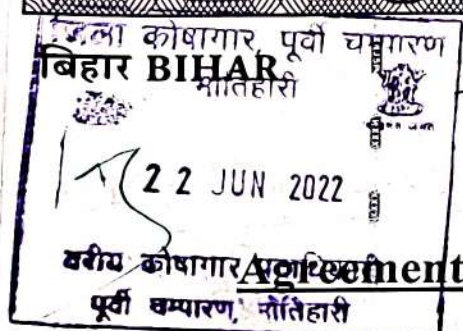 जिला कोषागार, पूर्वी चम्पारण
बिहार BIHAR
मोतिहारी
22 JUN 2022
वरीय कोषागार Agreement
पूर्वी चम्पारण, मोतिहारी